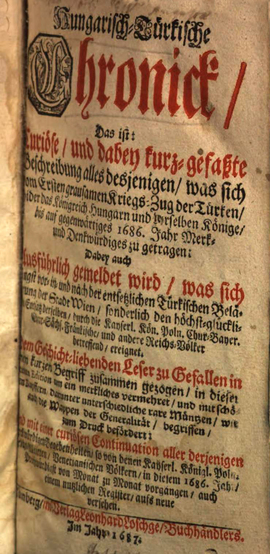 Hungarisch-Türkische
Chronick/
Das ist:
Curiöse/ und dabey kurz-gefaßte
Beschreibung alles desjenigen/ was sich
vom Ersten grausamen Kriegs-Zug der Türken/
wider das Königreich Hungarn und dyrselben Könige/
bis auf gegenwärtiges 1686. Jahr Merk-
und Denkwürdiges zu getragen:
Dabey auch
Ausführlich gemeldet wird/ was sich
jüngst vor- in und nach der entsetzlichen Türkischen Belä-
gerung der Stadt Wien/ sonderlich den höchst-glückli-
chen Entsetz derselben/ durch die Kayserl. Kön. Poln. Chur-Bayer.
Chur-Sächs. Fränkische/ und andere Reichs-Völker
betreffend/ ereignet.
Dem Geschicht-liebenden Leser zu Gefallen in
einen kurzen Begriff zusammen gezogen/ in dieser
Edition um ein merkliches vermehret/ und mit schö-
nen Kupffern. Darunter unterschiedliche rare Müntzen/ wie
auch die Wappen der Generalität/ begriffen/
zum Druck befördert:
und mit einer curiösen Continuation aller derjenigen
Begebenheiten/ so von denen Kayserl. Königl. Poln.
Venetianischen Völkern/ in diesem 1686. Jah/
von Monat zu Monat vorgangen/ auch
einem nutzlichen Register/ aufs neue
versehen.
Nürnberg/ im Verlag Leonhard Loschge/ Buchhändlers.
Im Jahr 1687.